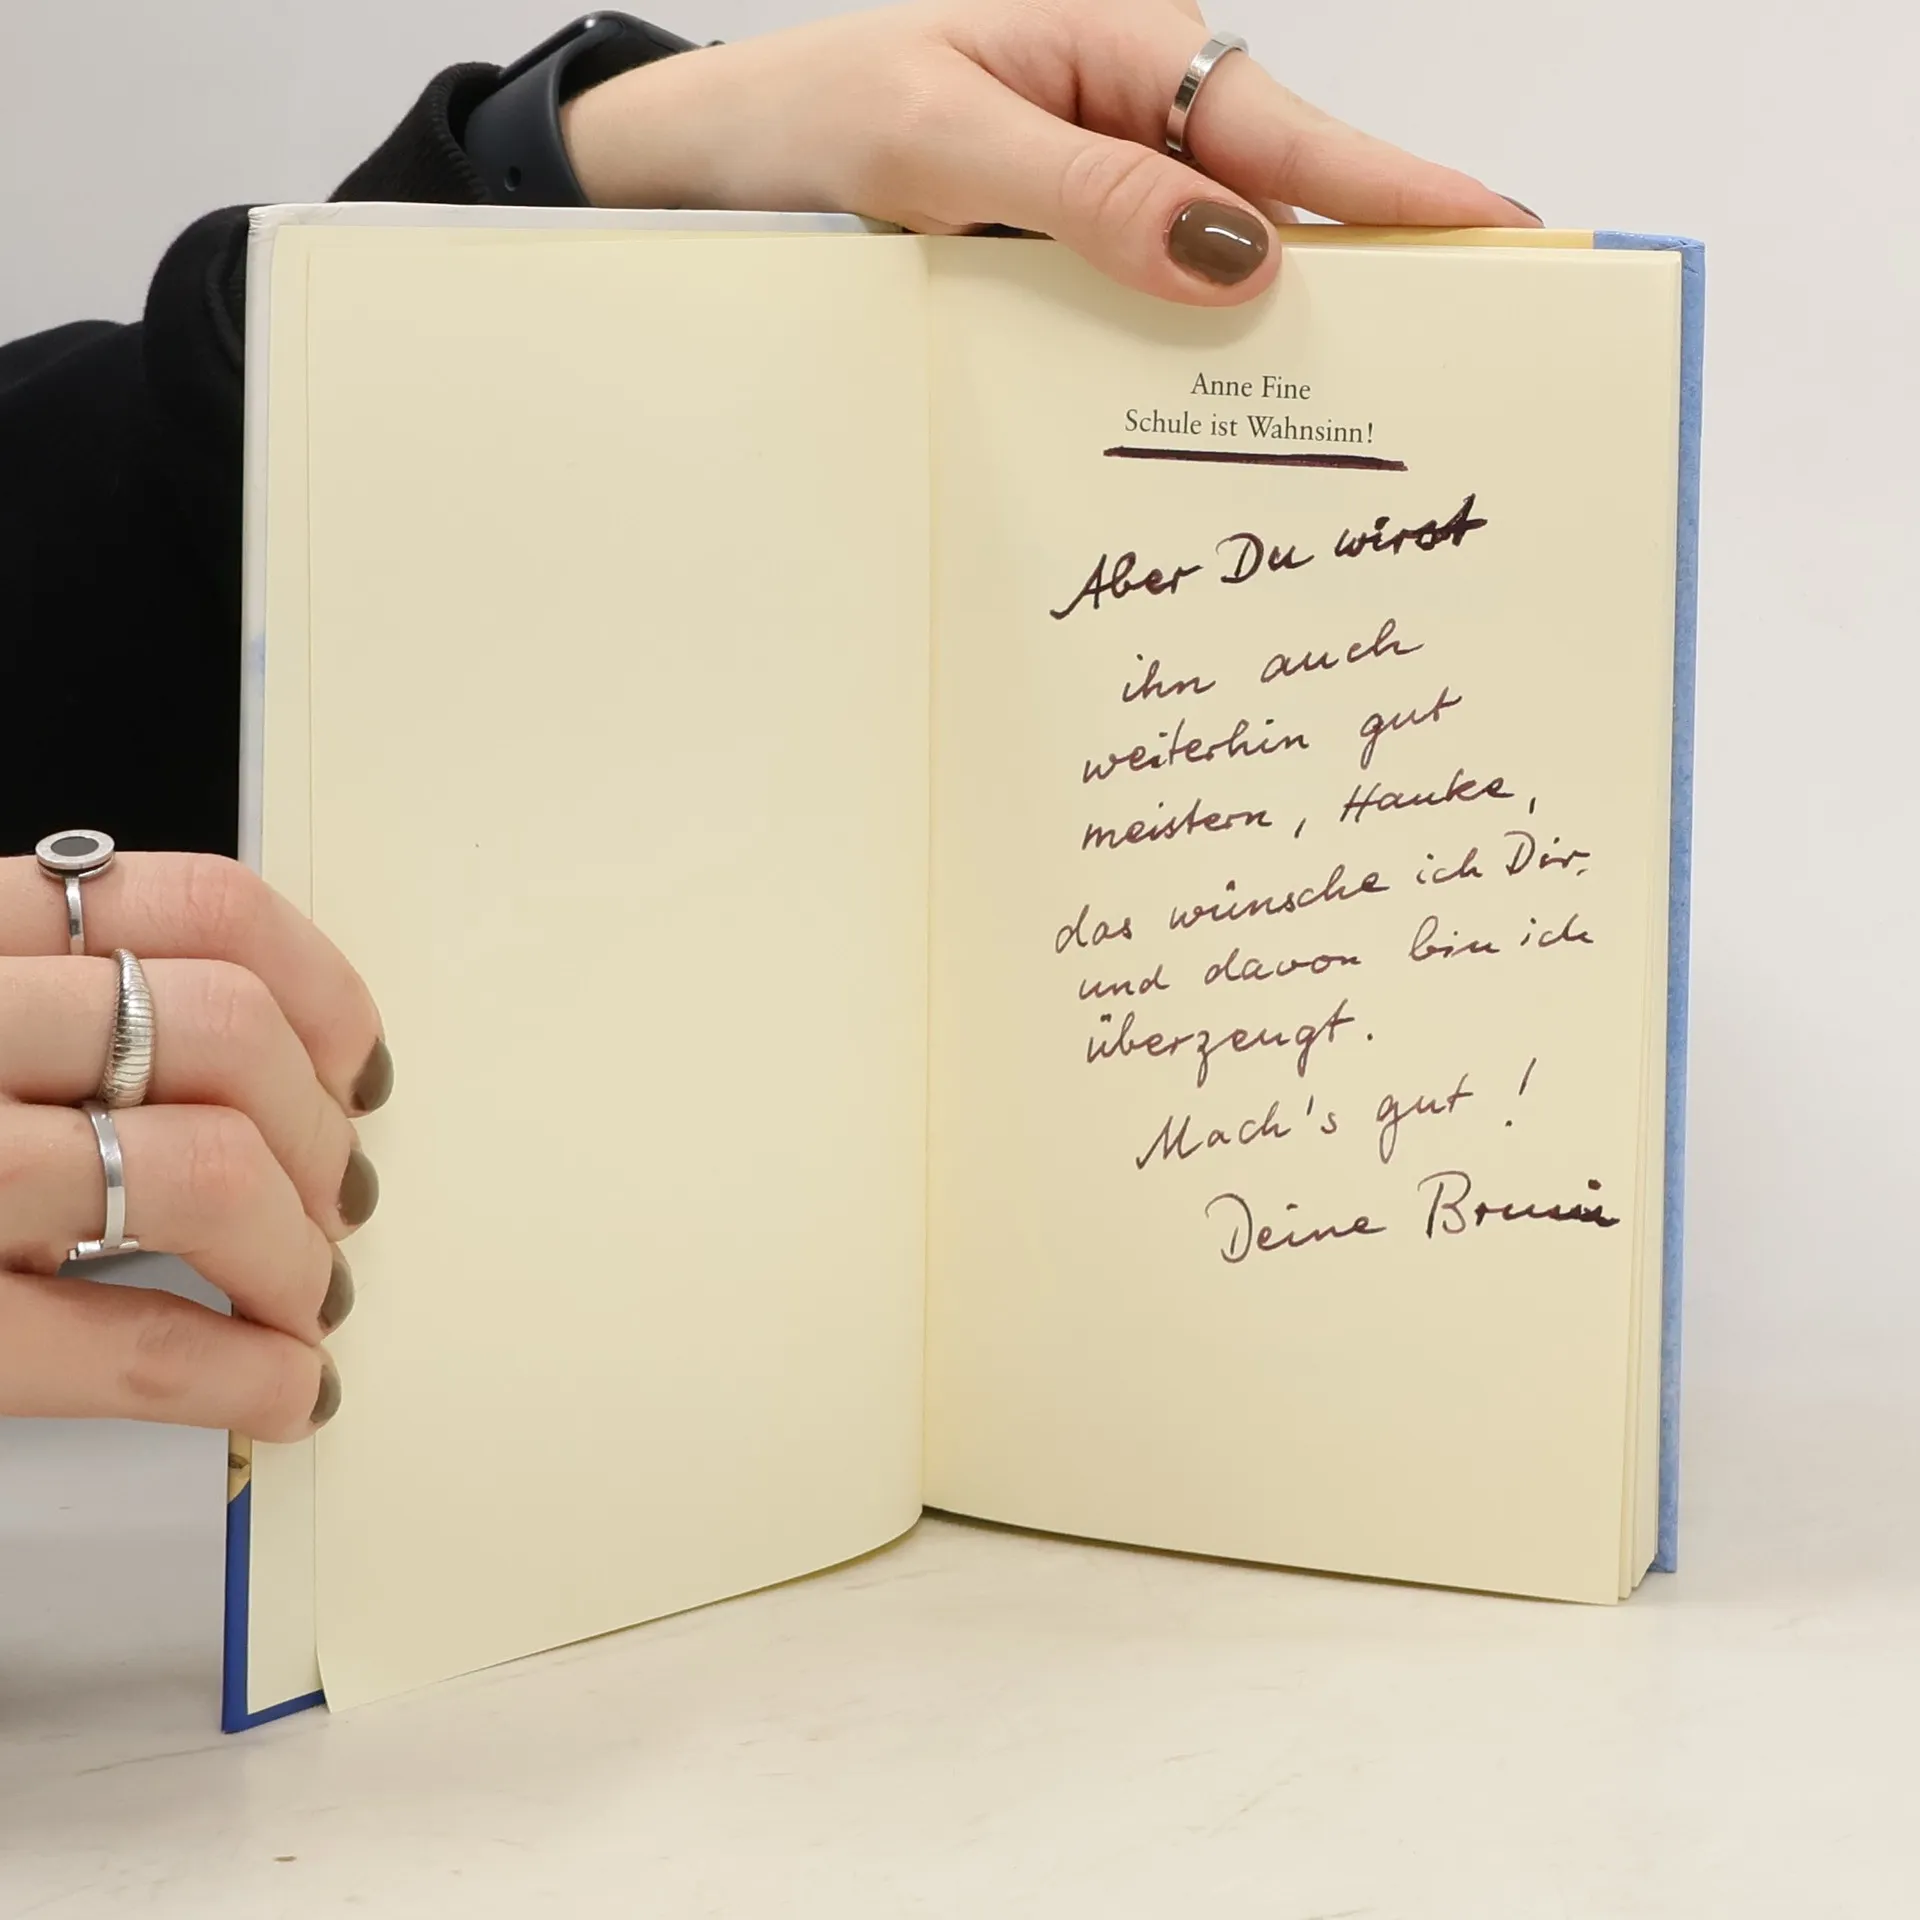 Anne Fine
Schule ist Wahnsinn!
Aber Du wirst
ihn auch
weiterhin gut
meistern, Hauke,
das wünsche ich Dir,
und davon bin ich
überzeugt.
Mach's gut!
Deine